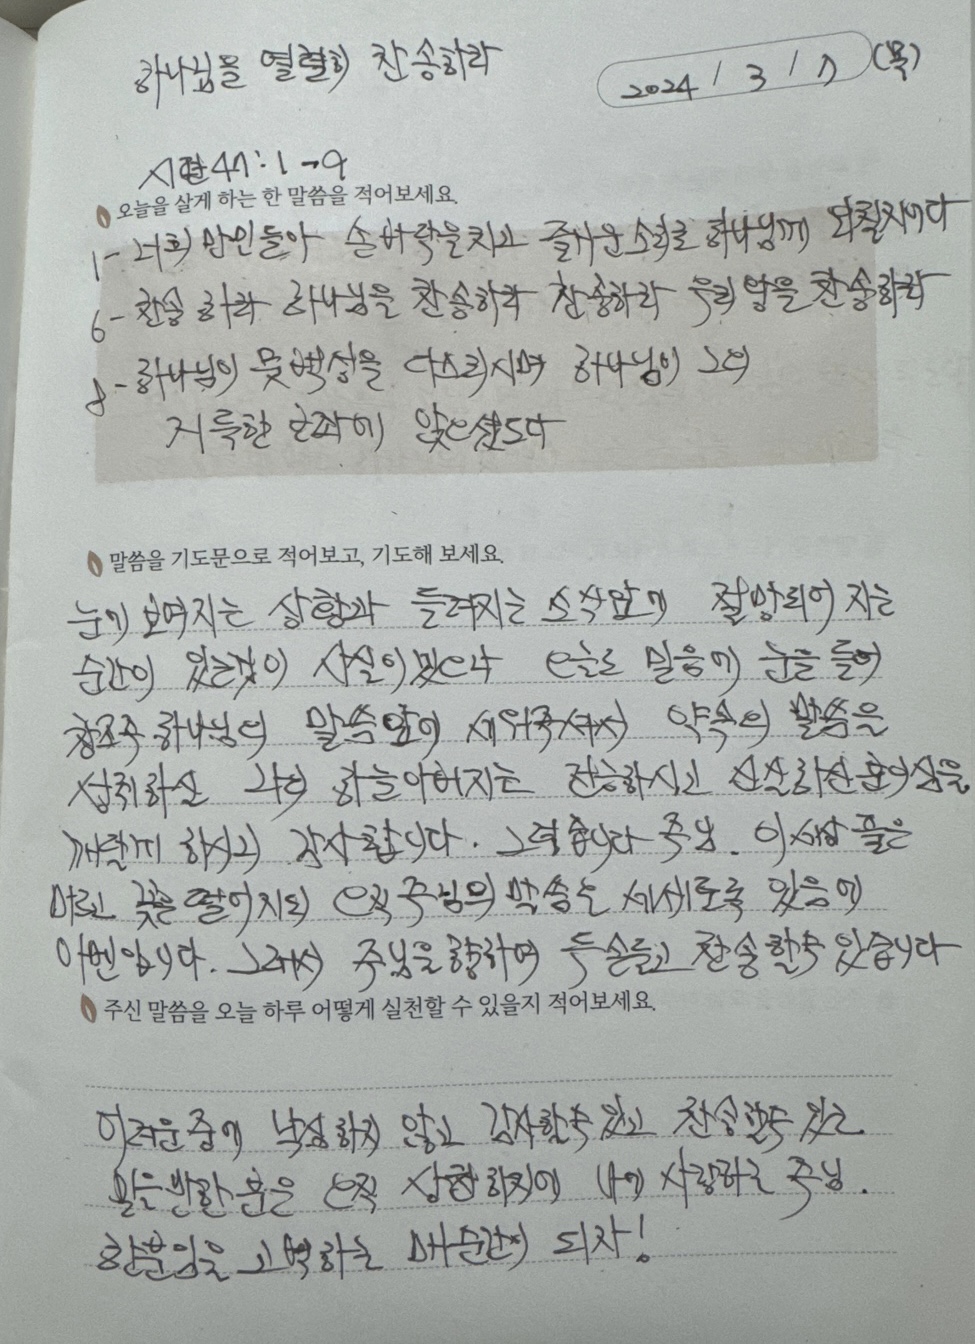 하나님을 열렬히 찬송하라
2024 / 3 / 7 (목)
시편 47:1→9
오늘을 살게 하는 한 말씀을 적어보세요.
1- 너희 만민들아 손바닥을 치고 즐거운 소리로 하나님께 외칠지어다
6- 찬송하라 하나님을 찬송하라 찬송하라 우리 왕을 찬송하라
8- 하나님이 뭇백성을 다스리시며 하나님이 그의
거룩한 보좌에 앉으셨도다
말씀을 기도문으로 적어보고, 기도해 보세요.
눈에 보여지는 상황과 들려지는 소식앞에 절망되어 지는
순간이 있는것이 사실이었으나 믿음에 눈을 들어
창조주 하나님의 말씀앞에 세워주셔서 약속의 말씀을
성취하신 나의 하늘아버지는 전능하시고 신실하신 분이심을
깨닫게 하시니 감사합니다. 그렇습니다 주님. 이세상 풀은
마르고 꽃은 떨어지되 오직 주님의 말씀은 세세토록 있음에
아멘입니다. 그래서 주님을 향하여 두손들고 찬송할수 있습니다
주신 말씀을 오늘 하루 어떻게 실천할 수 있을지 적어보세요.
어려운중에 낙심하지 않고 감사할수 있고 찬송할수 있는
믿을만한 분은 오직 사랑하는 주님.
한분임을 고백하는 매순간이 되자!